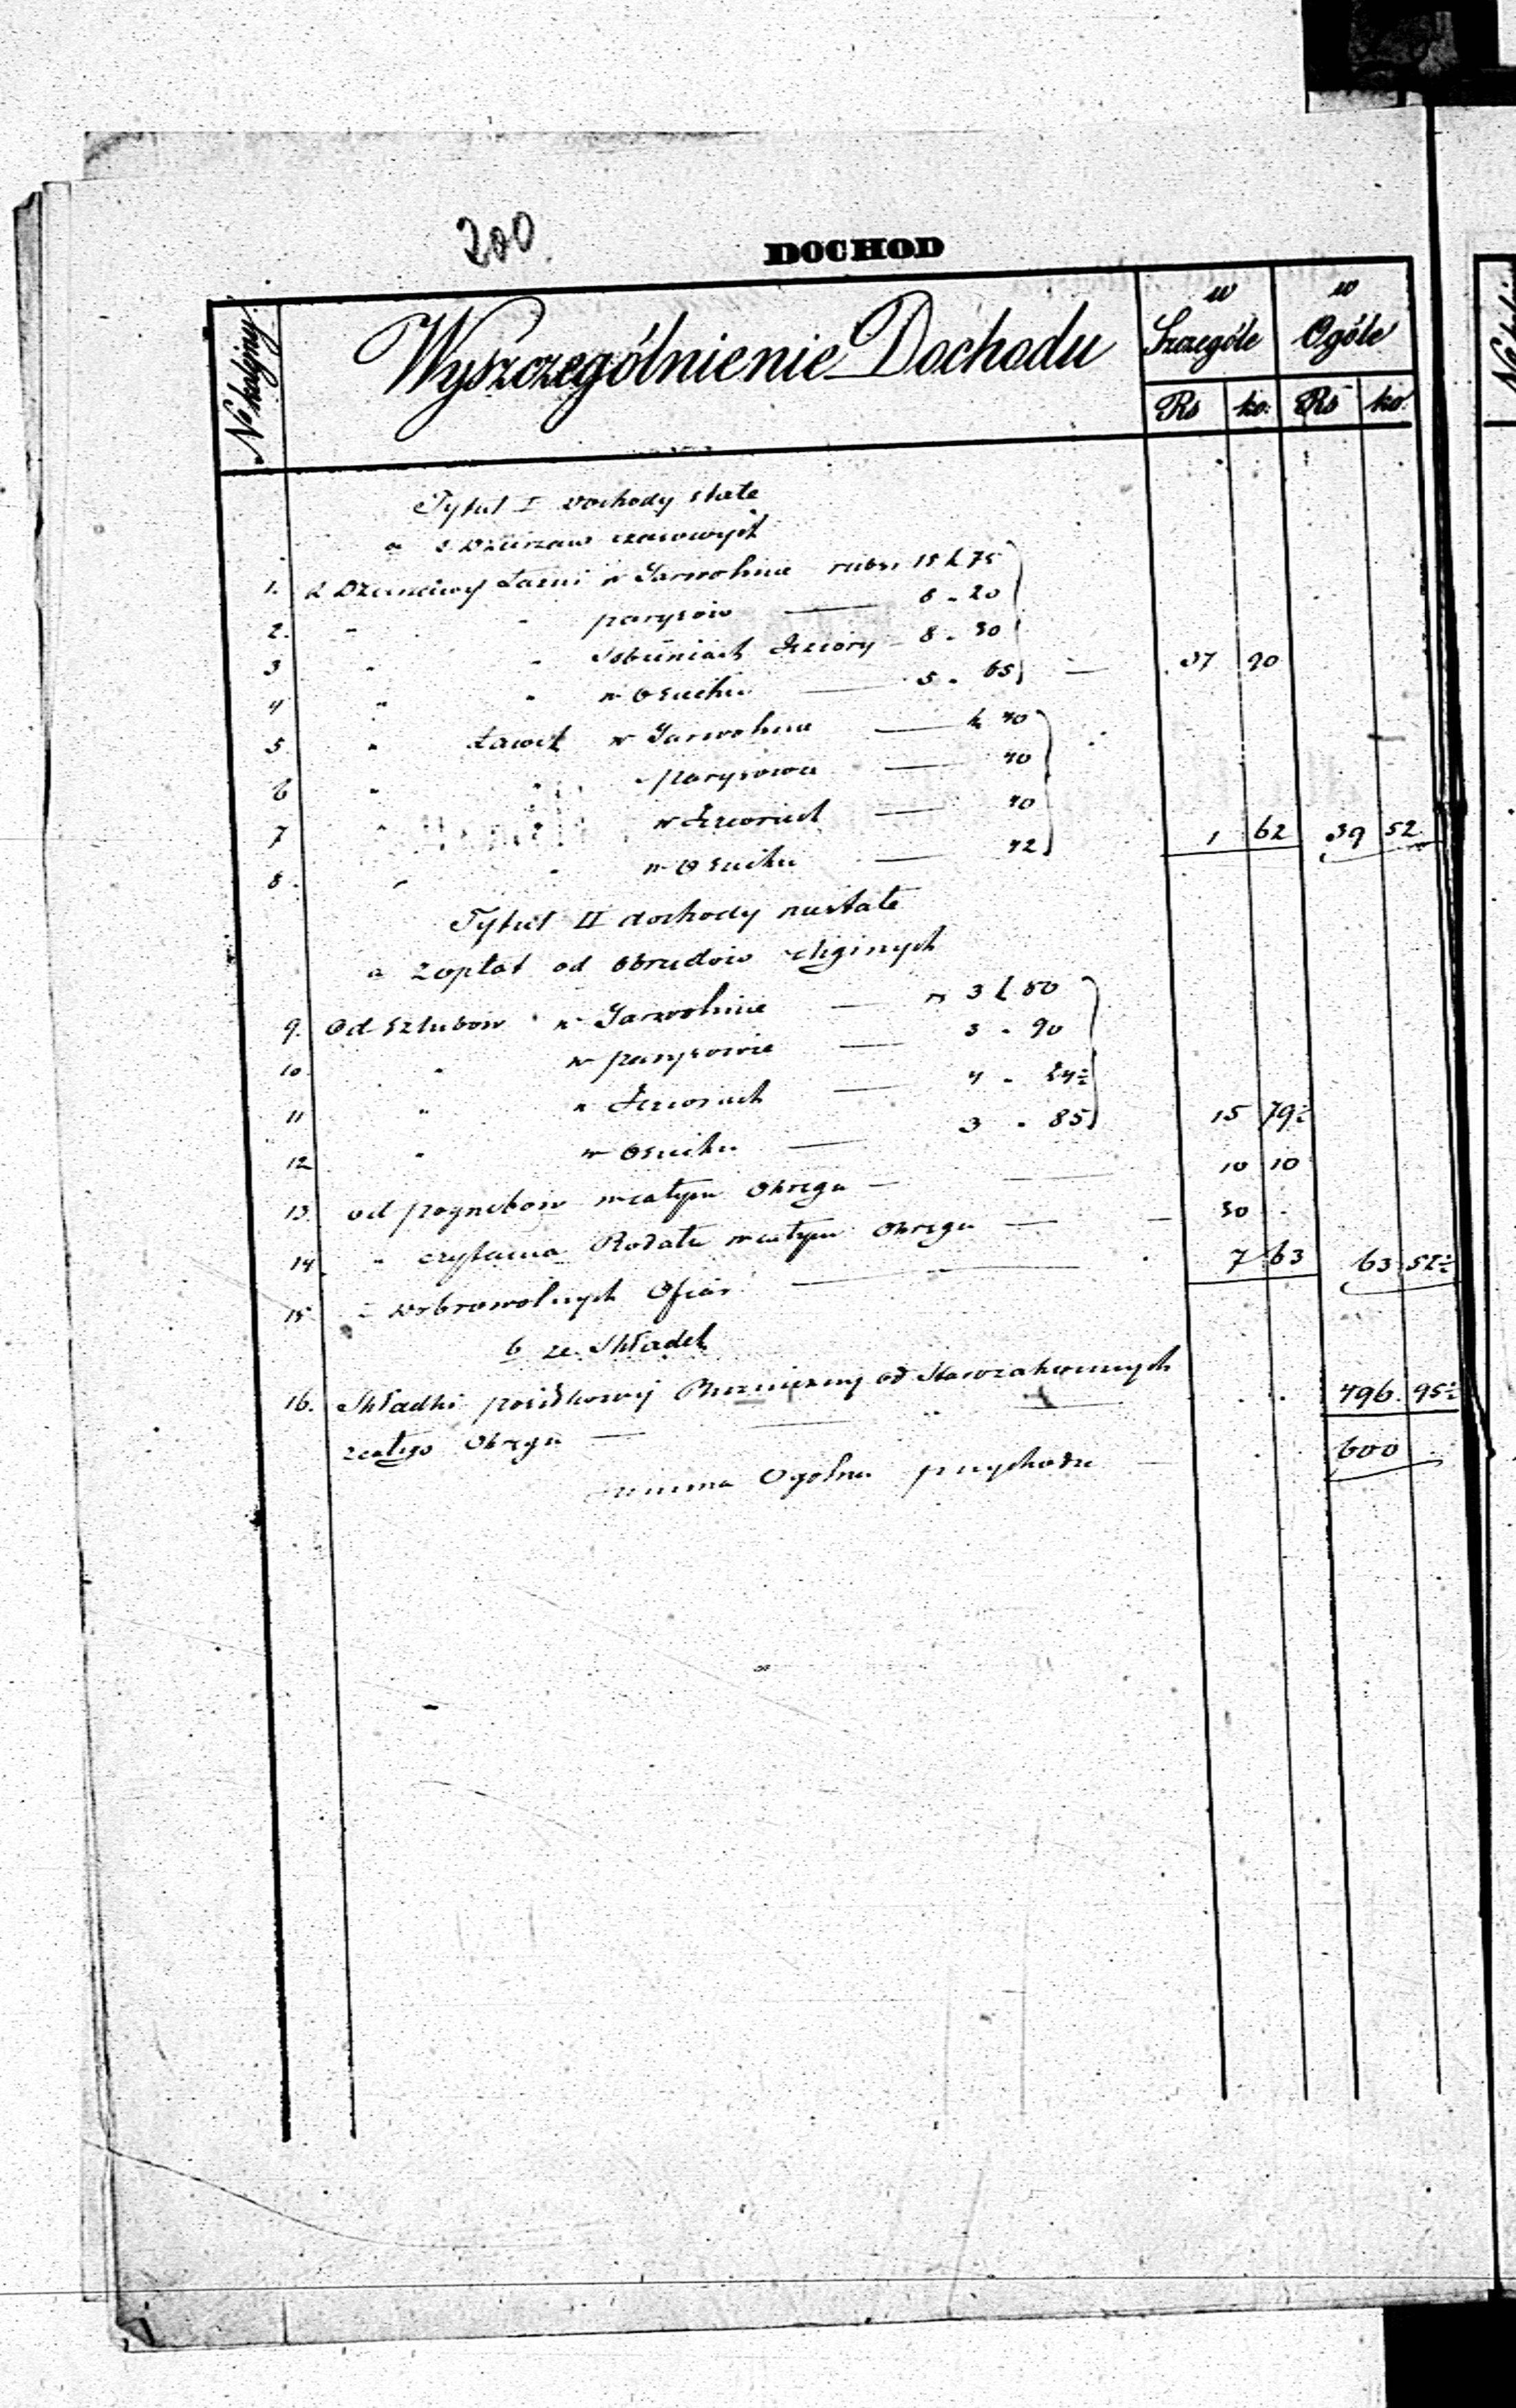 200.
DOCHOD
No kolejny
Wyszczególnienie Dochodu
w Szczególe
w Ogóle
Rs ko. Rs ko.
Tytuł I dochody stałe
a z Dzierzaw czasowych
1. z Dzierżawy Łazni w Garwolinie rubsr 15 k 75
2. " " parysow — 8 - 20
3 " " Sobieniach Jeziory - 8 - 30
4 " " w Osieku — 5 - 65 — 37 90
5 " Ławek w Garwolinie — k 40
6 " " Parysowie — 40
7 " " w Jeziorach — 40
8. " " w Osieku — 42 1 62 39 52
Tytuł II dochody niestałe
a zopłat od obrzędow religinych
9. Od szlubow w Garwolinie — rs 3 k 80
10. " w parysowie — 3 - 90
11 " w Jeziorach — 4 - 24½
12 " w Osieku — 3 - 85 15 79½
13. od pogrzebow wcałym Okręgu — 10 10
14 " czytania Rodału wcałym Okręgu — 30 -
15 z dobrowolnych Ofiar — 7 63 63 52½
b ze Składek
16. Składki posiłkowej Bożniczny od Starozakonnych
zcałego Okręgu — 496. 95½
Summa Ogolna przychodu — 600